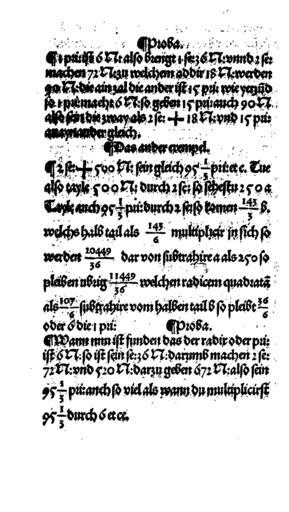 ¶Proba.
¶1 pri: ist 6 N: also bringt 1 se: 36 N: vnnd 2 se:
machen 72 N: zu welchem addir 18 N: werden
90 N: die ain zal die ander ist 15 pri: wie
so 1 pri: macht 6 N: so geben 15 pri: auch 90 N:
also sein die zway als 2 se: + 18 N: vnd 15 pri:
aynander gleich.
¶Das ander exempel.
¶2 se: + 500 N: sein gleich 95 1/3 pri: etc. Tue
also tayle 500 N: durch 2 se: so 250 a
Tayle auch 95 1/3 pri: durch 2 se: so komen 143/3 b.
welchs halb tail als 143/6 multiplicir in sich so
werden 20449/36 dar von subtrahire a als 250 so
pleiben übrig 11449/36 welchen radicem quadratā
als 107/6 subtrahire vom halben tail b so pleibt 36/6
oder 6 die 1 pri: ¶Proba.
¶Wann nun ist funden das der radix oder pri:
ist 6 N: so ist sein se: 36 N: darumb machen 2 se:
72 N: vnd 520 N: darzu geben 672 N: also sein
95 1/3 pri: auch so viel als wann du multiplicirst
95 1/3 durch 6 etcc.